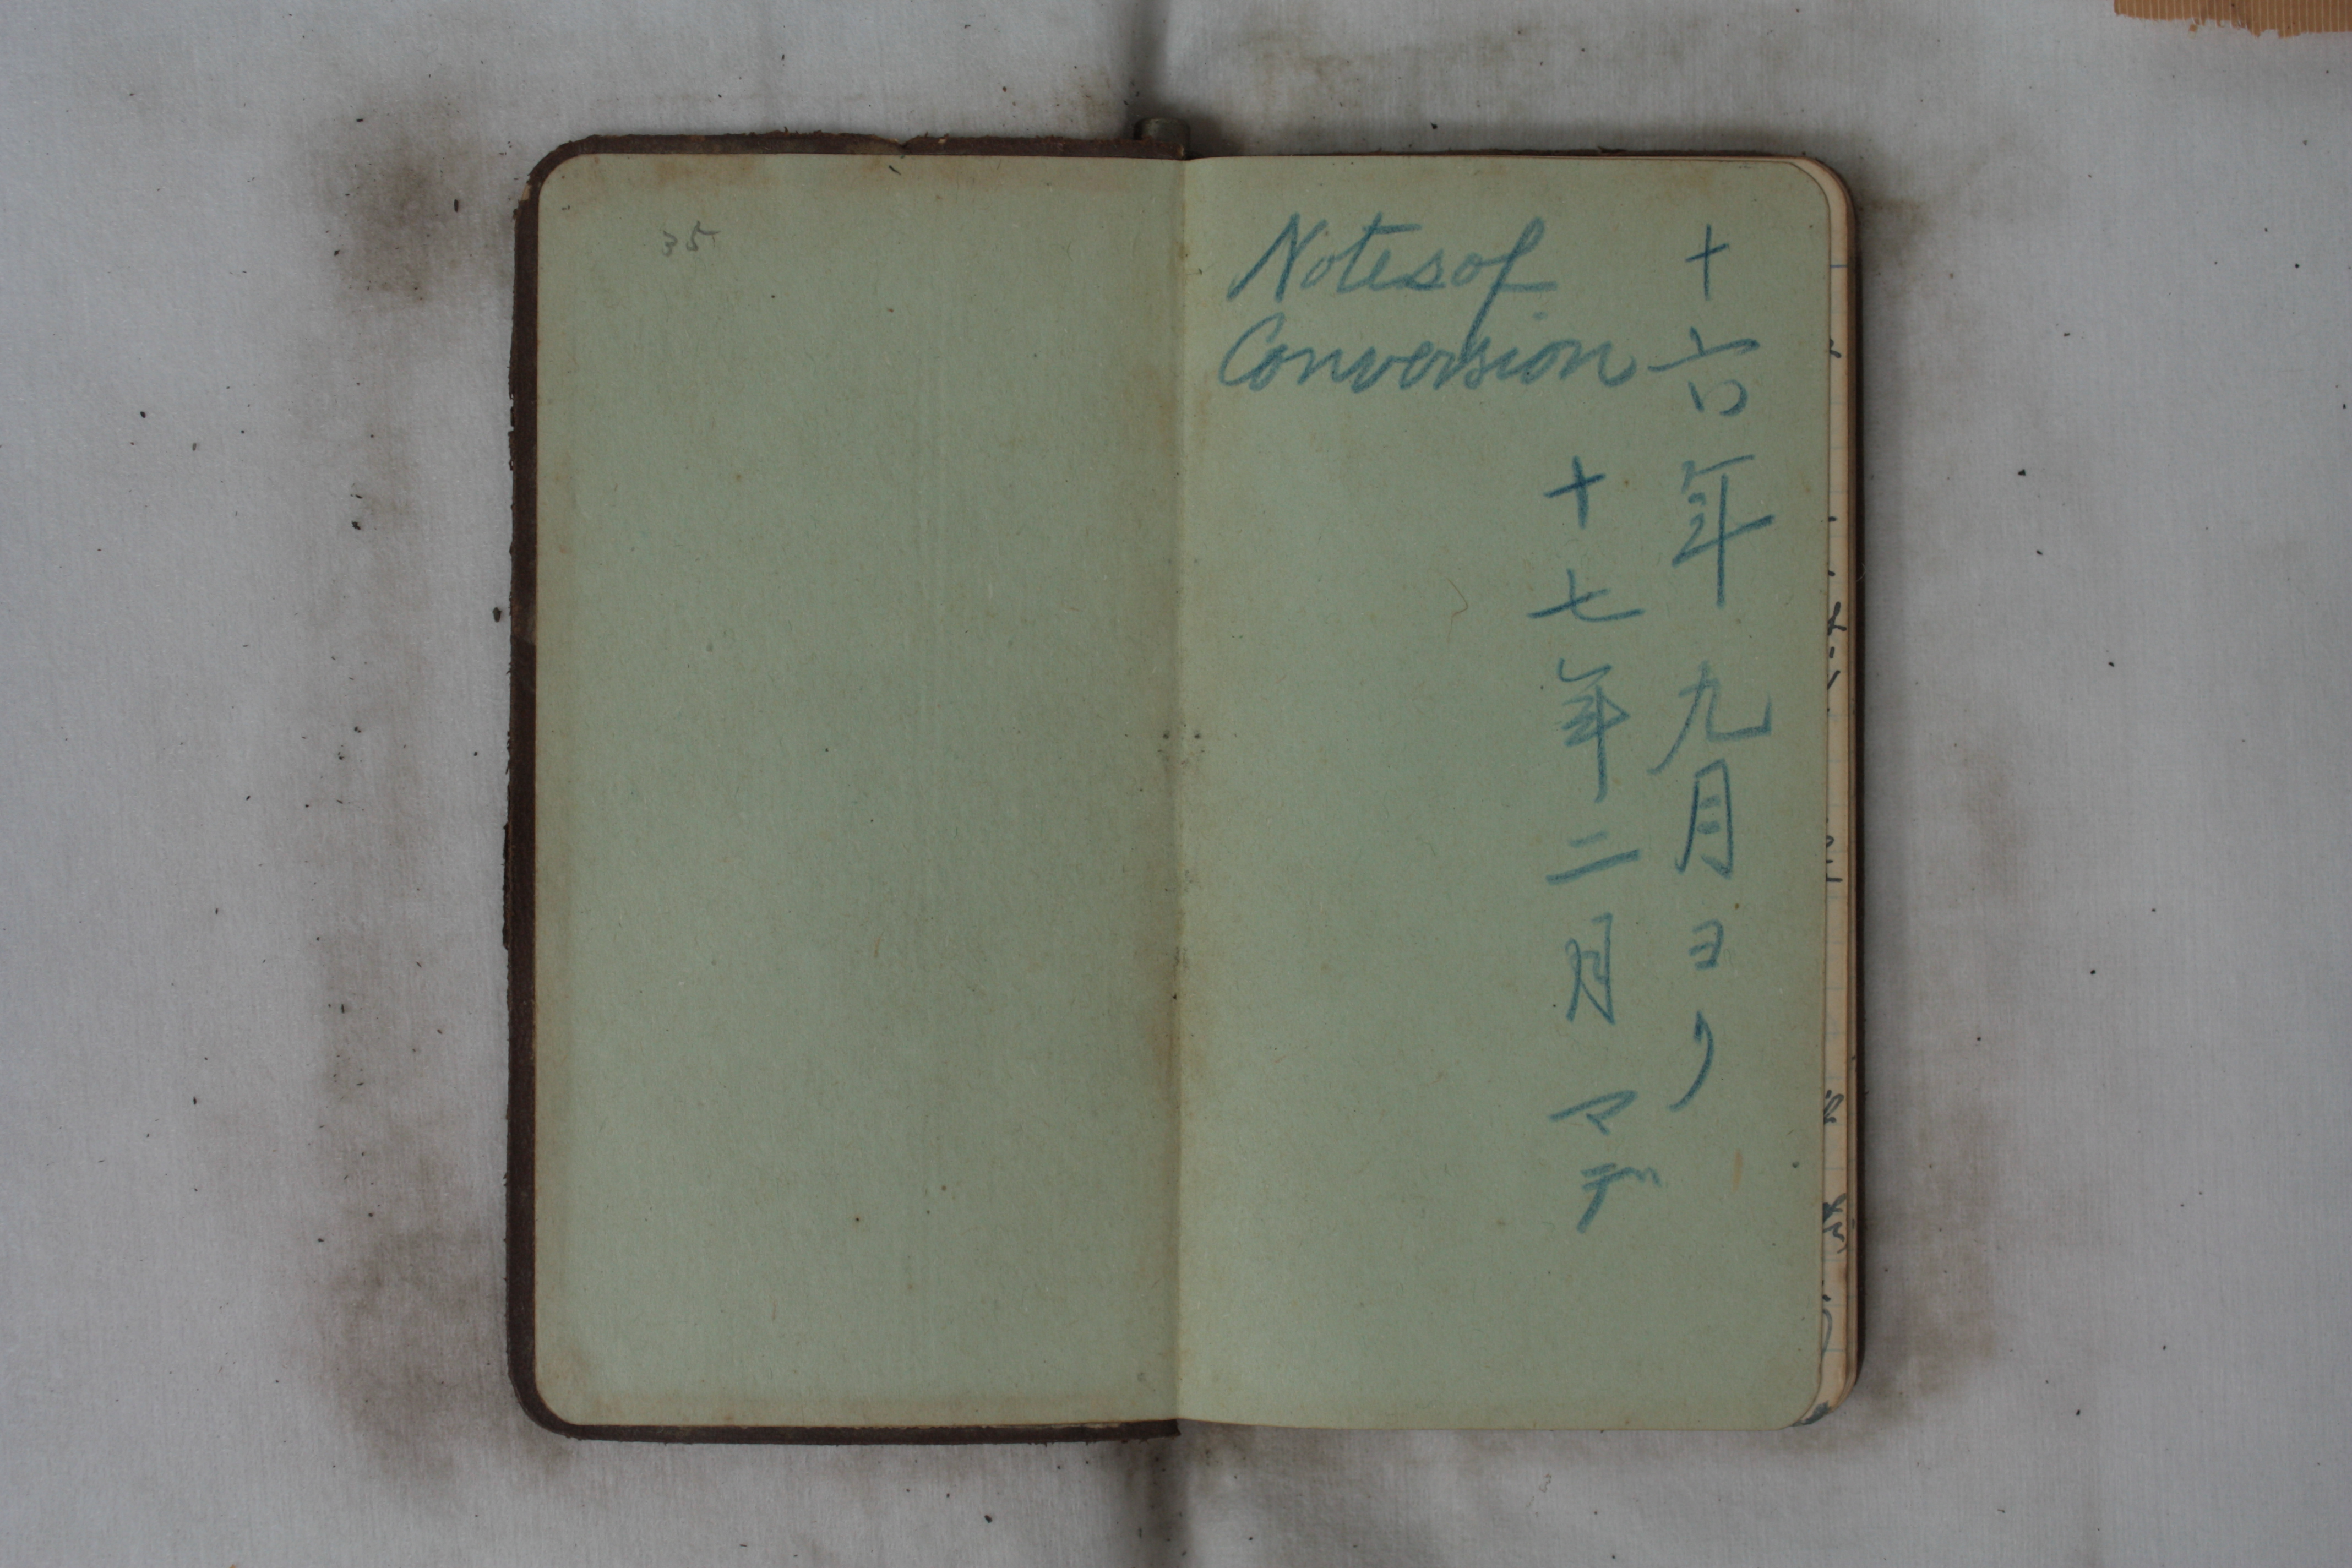 35
Notes of
Conversion
十六年九月ヨリ
十七年二月マデ